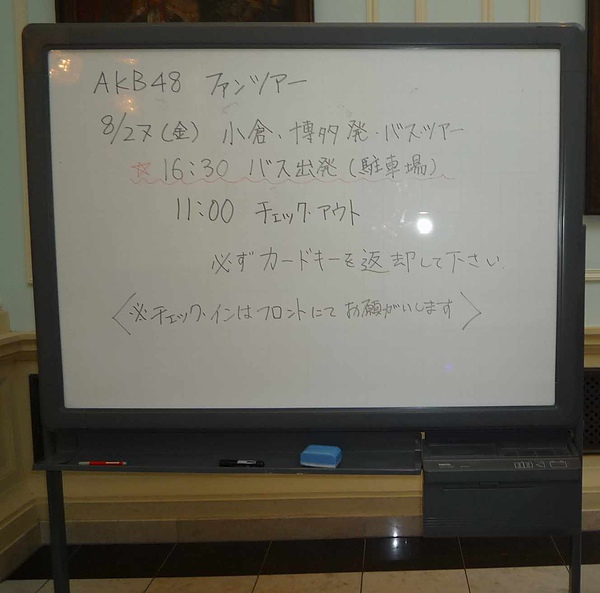 AKB48 ファンツアー
8/27(金) 小倉、博多発・バスツアー
☆16:30 バス出発(駐車場)
11:00 チェック・アウト
必ずカードキーを返却して下さい
〈※チェック・インはフロントにてお願がいします〉